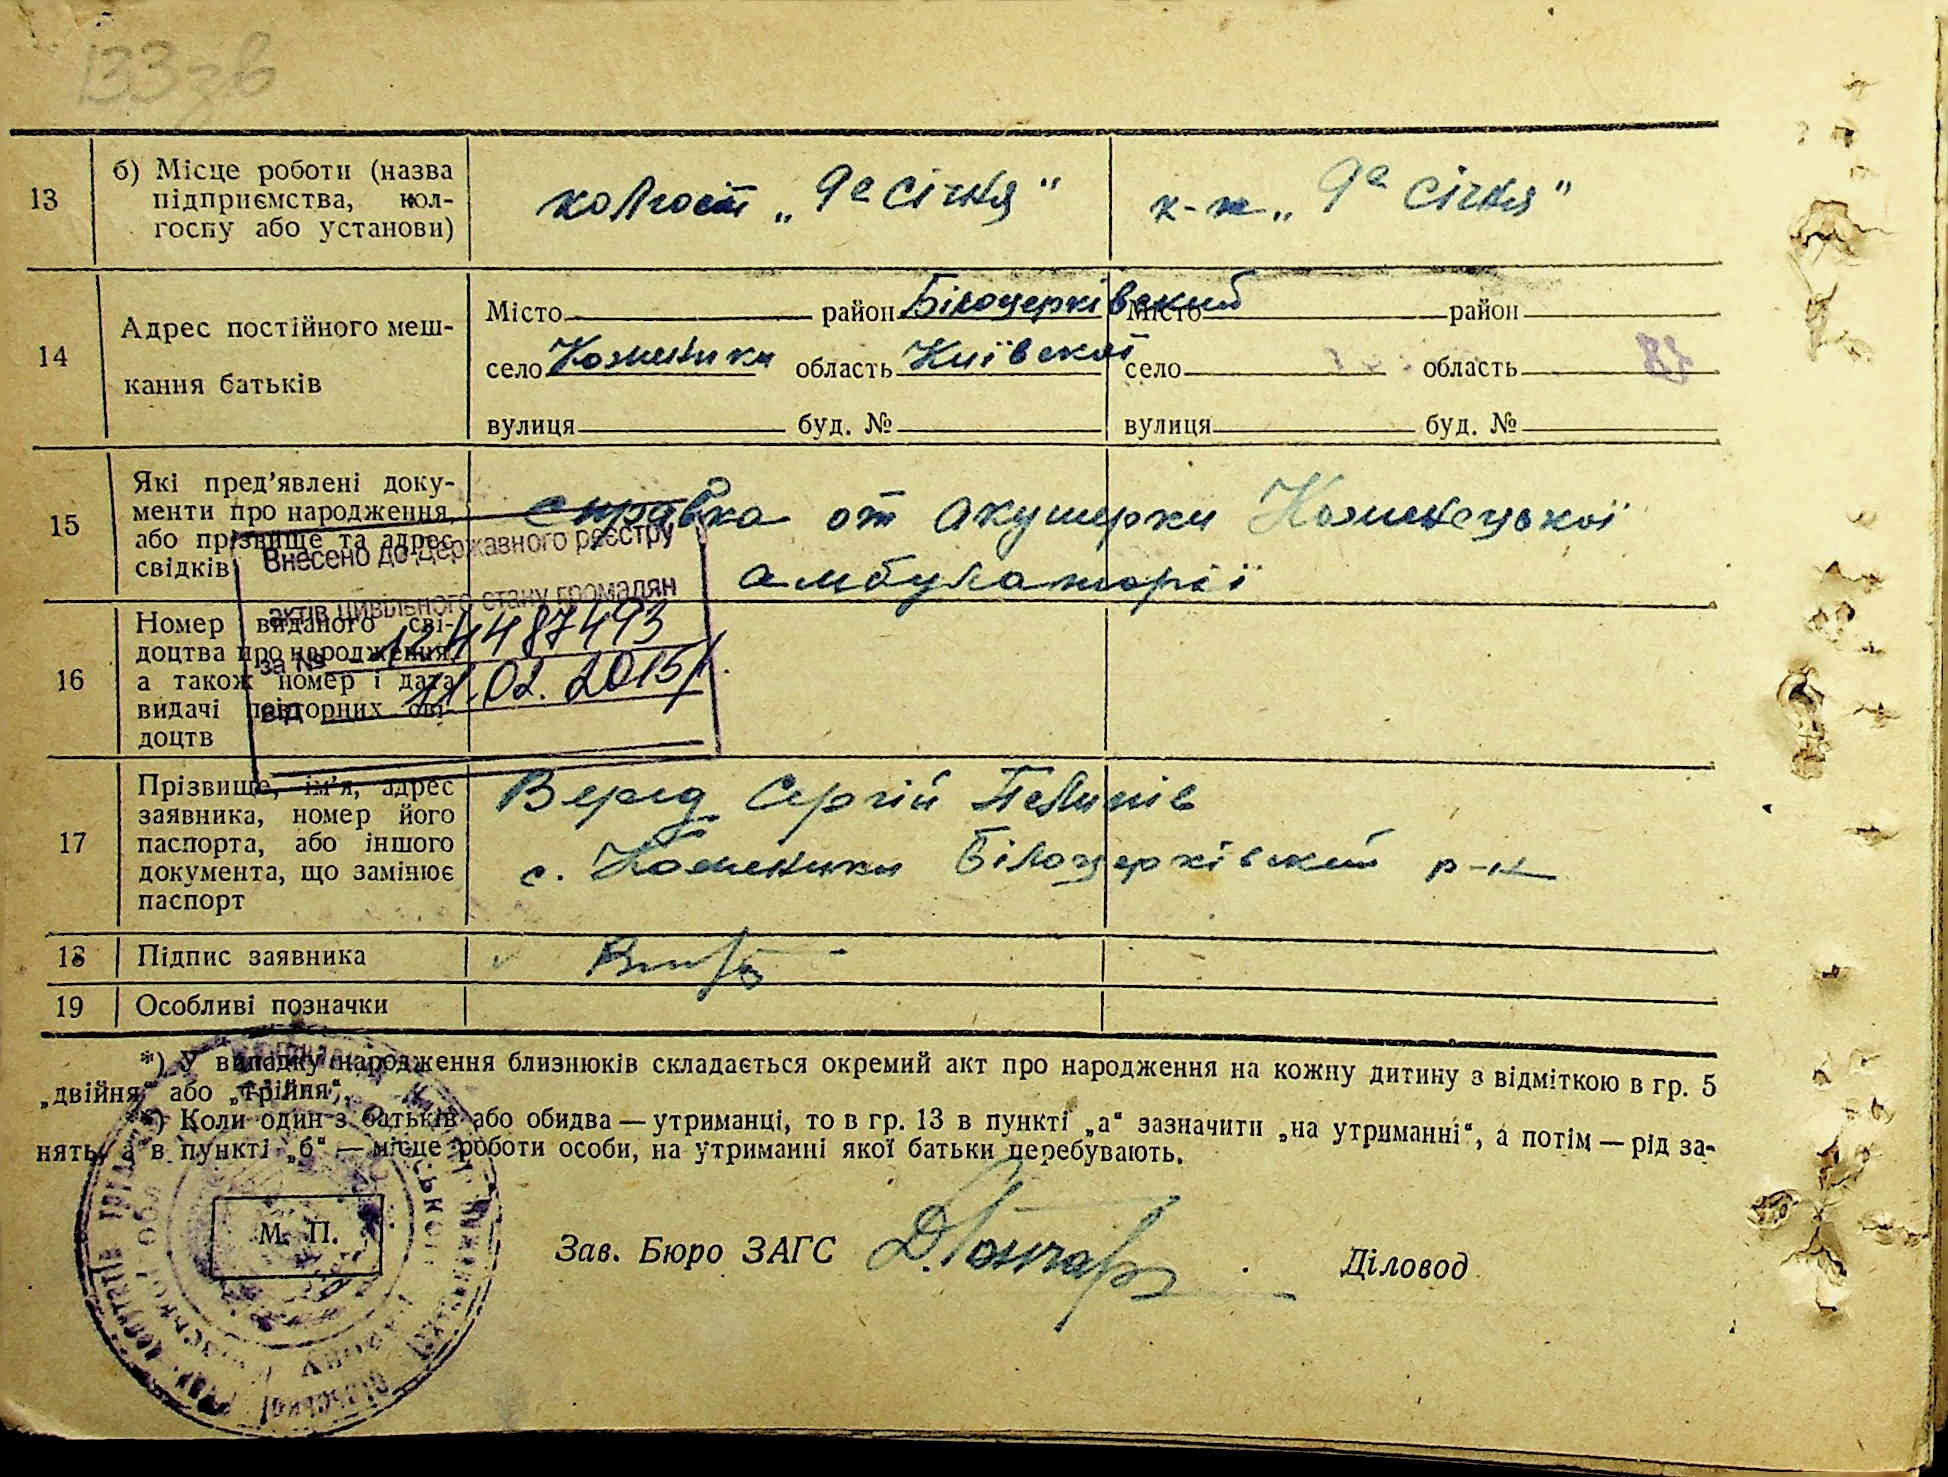 133 зв
13
б) Місце роботи (назва
підприємства, кол-
госпу або установи)
колгосп „9е січня"
к-п „9е січня"
14
Адрес постійного меш-
кання батьків
Місто район Білоцерківский
село області Київскої
вулиця буд. №
Місто район
село область
вулиця буд. №
15
Які пред'явлені доку-
менти про народження,
або прізвище та адрес
свідків
справка от акушерки
амбулаторії
Внесено до Державного реєстру
актів цивільного стану громадян
за № 12 4487493
від 11.02.2015
16
Номер виданого сві-
доцтва про народження,
а також номер і дата
видачі повторних сві-
доцтв
17
Прізвище, ім'я, адрес
заявника, номер його
паспорта, або іншого
документа, що замінює
паспорт
Сергій
с. Білоцерківский р-н
18
Підпис заявника
19
Особливі позначки
*) У випадку народження близнюків складається окремий акт про народження на кожну дитину з відміткою в гр. 5
„двійня" або „трійня".
**) Коли один з батьків або обидва — утриманці, то в гр. 13 в пункті „а" зазначити „на утриманні", а потім — рід за-
нять, а в пункті „б" — місце роботи особи, на утриманні якої батьки перебувають.
М. П.
Зав. Бюро ЗАГС Д. Гончар
Діловод